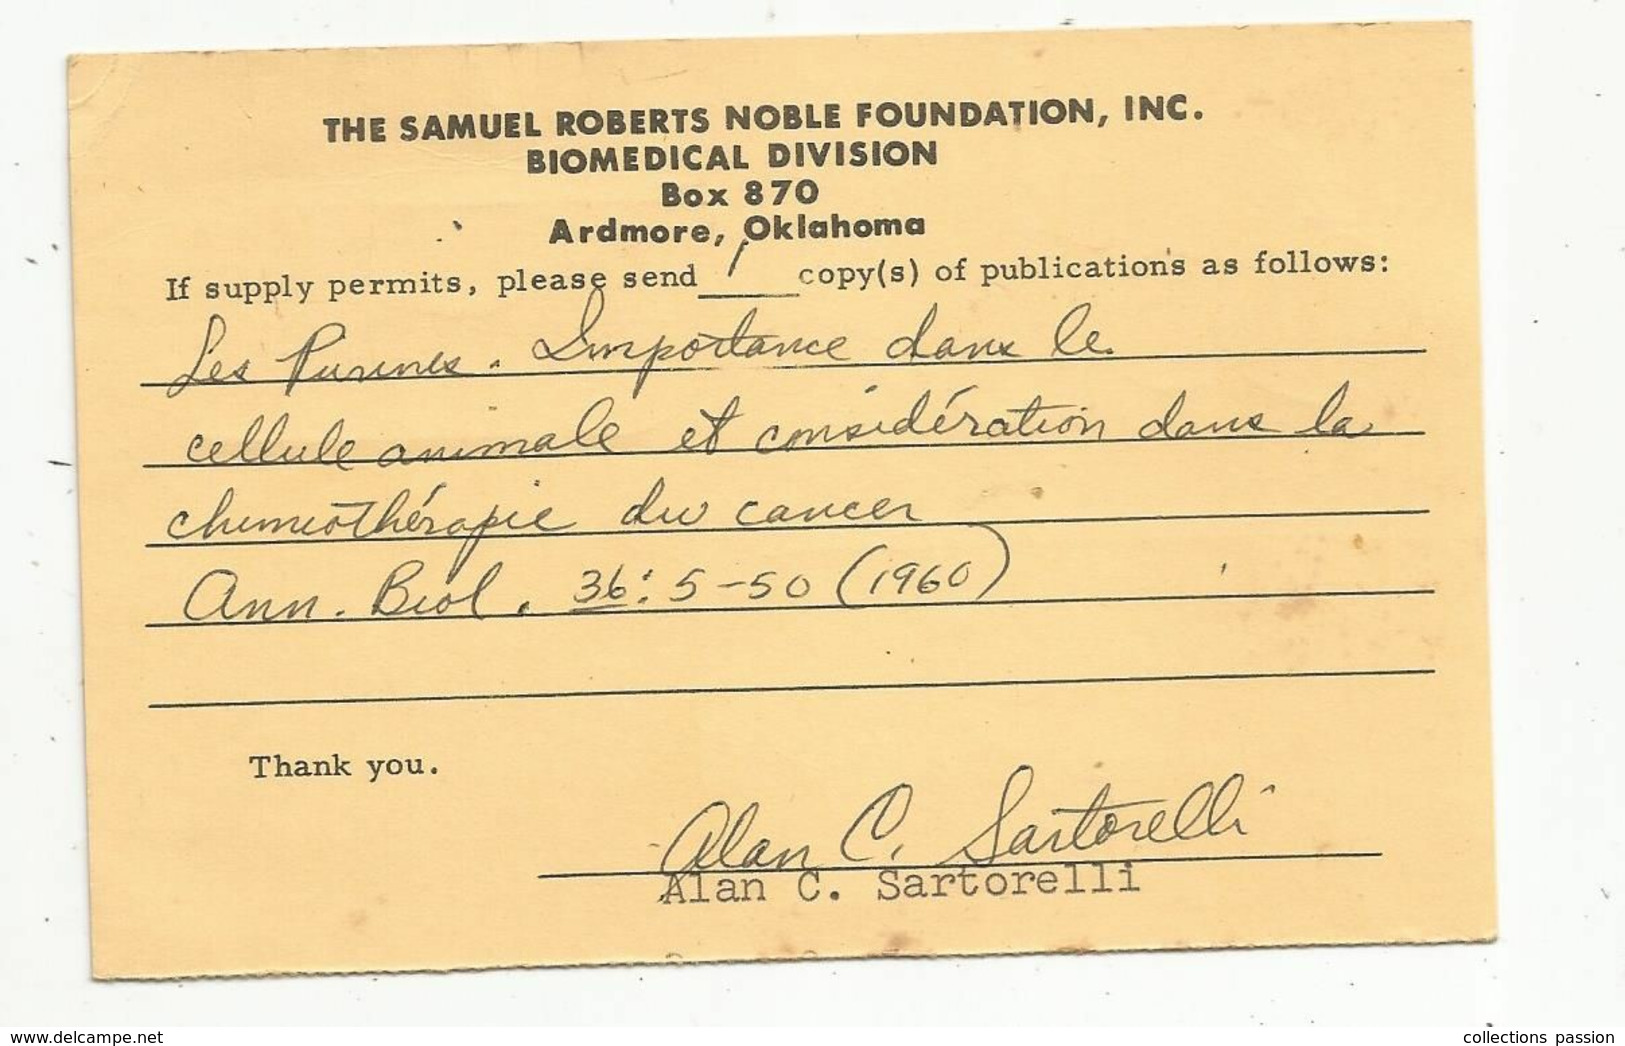 THE SAMUEL ROBERTS NOBLE FOUNDATION, INC.
BIOMEDICAL DIVISION
Box 870
Ardmore, Oklahoma
If supply permits, please send 1 copy(s) of publications as follows:
Les Purines. Importance dans le
cellule animale et considération dans la
chimiothérapie du cancer
Ann. Biol. 36: 5-50 (1960)
Thank you.
Alan C. Sartorelli
Alan C. Sartorelli
www.delcampe.net
collections passion